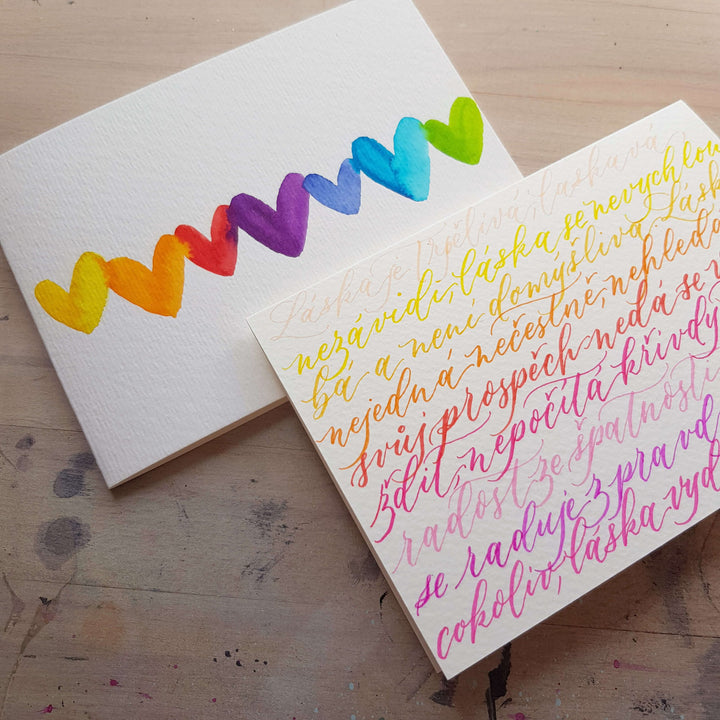 Láska je trpělivá, laskavá
nezávidí, láska se nevychlou
bá a není domýšlivá. Lásk
nejedná nečestně, nehledá
svůj prospěch nedá se v
ždit, nepočítá křivdy
radost ze špatnosti
se raduje z pravd
cokoliv, láska vyd